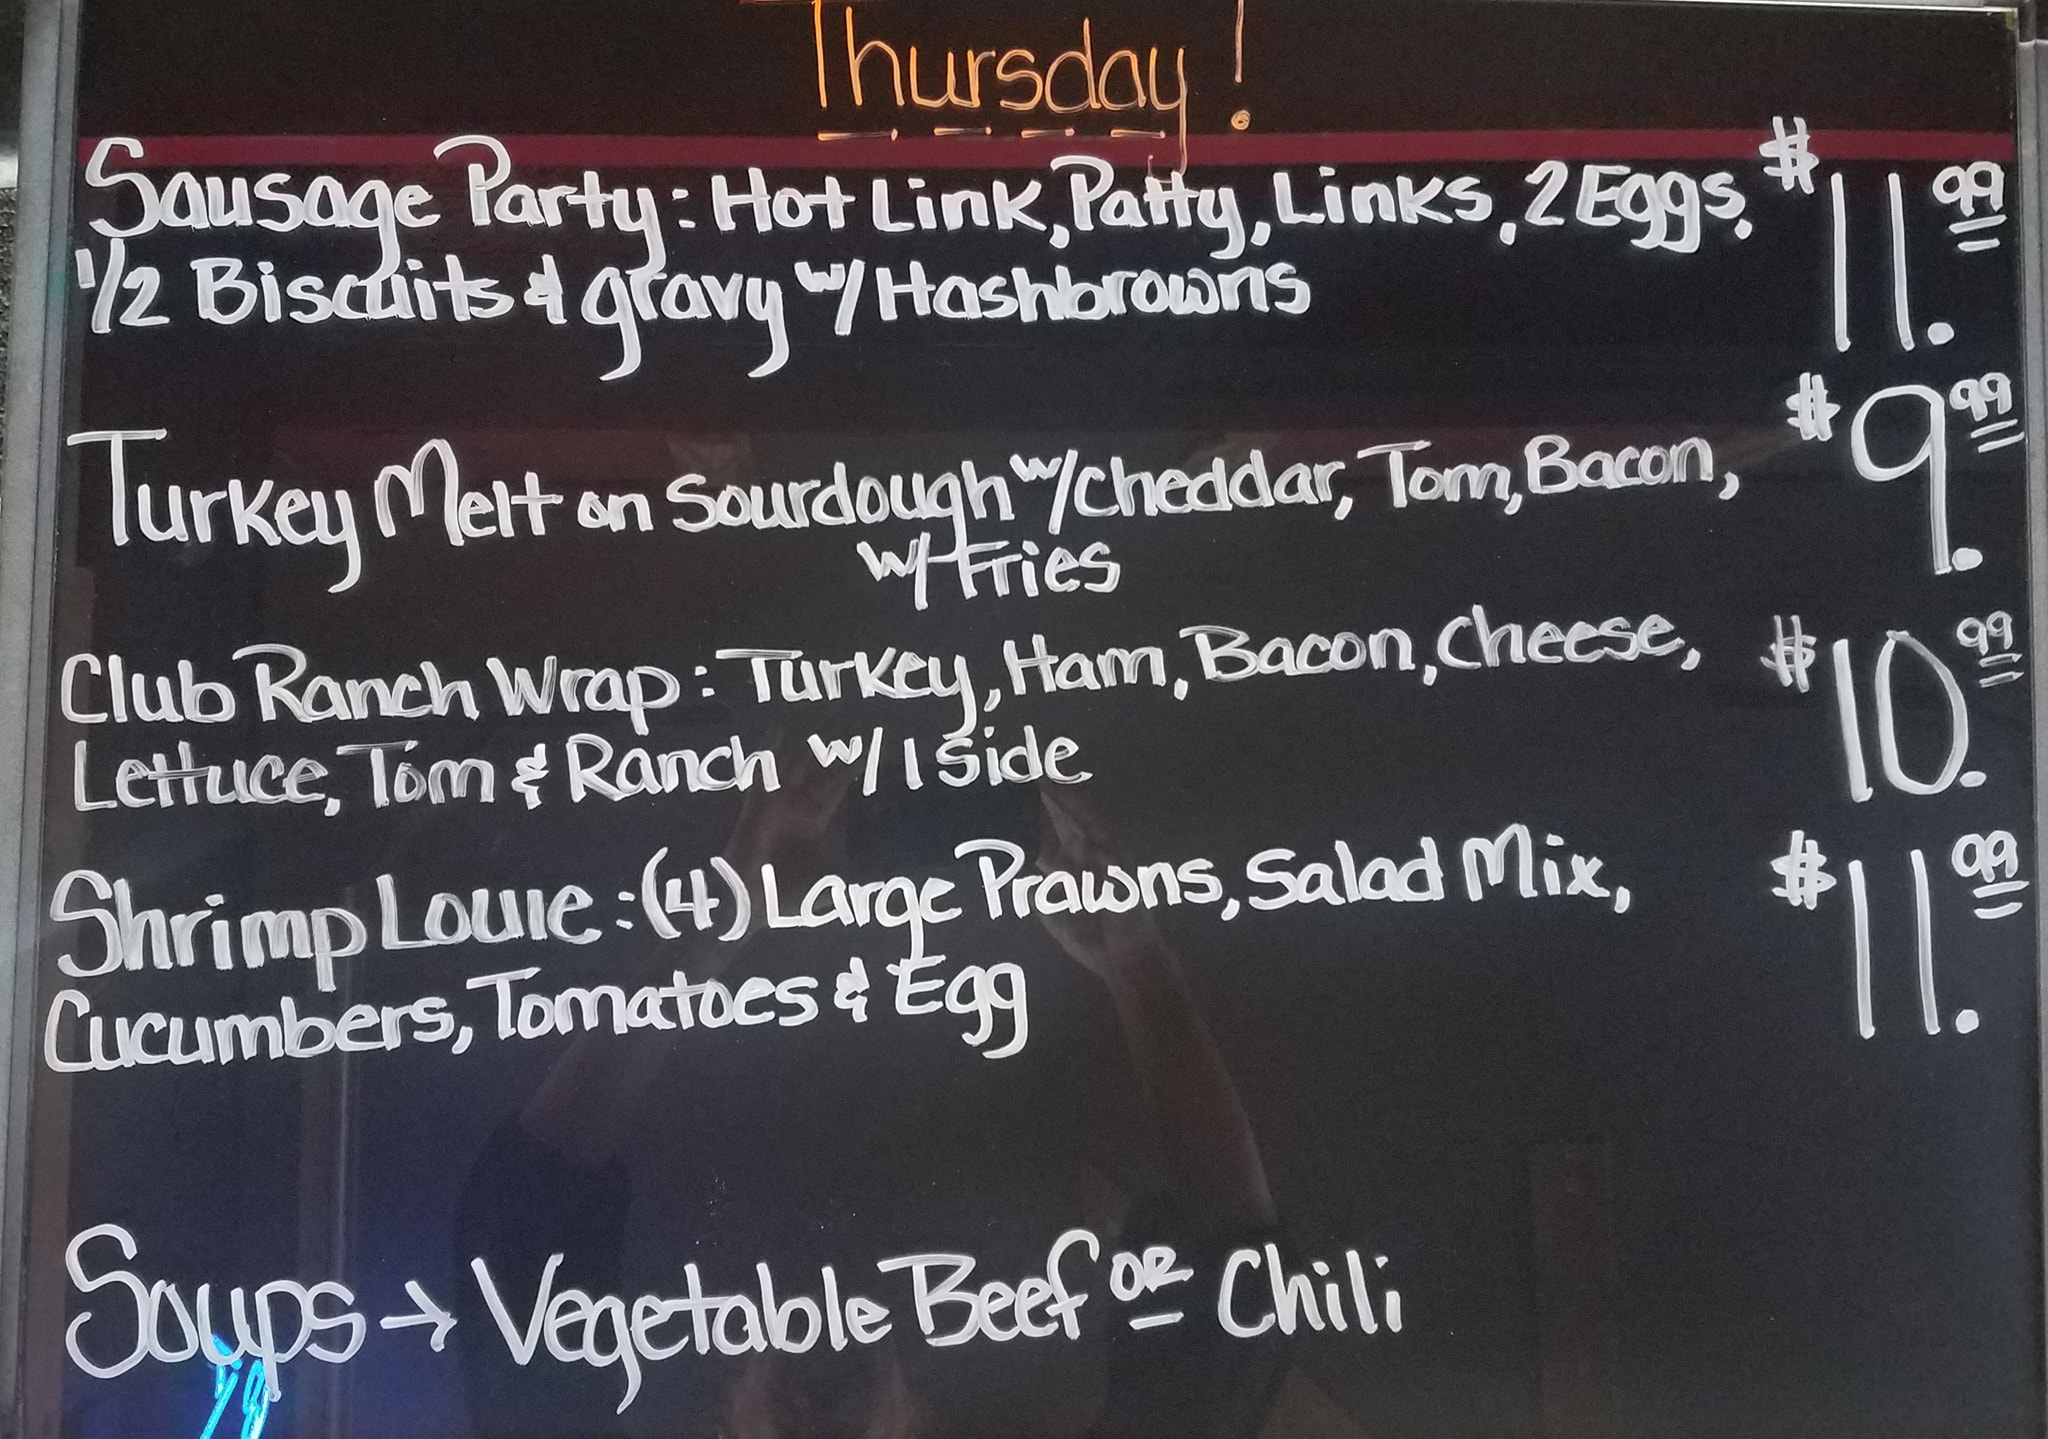 Thursday!
Sausage Party: Hot Link, Patty, Links, 2 Eggs, $11.99
1/2 Biscuits & gravy w/ Hashbrowns
Turkey Melt on Sourdough w/ Cheddar, Tom, Bacon, $9.99
w/ Fries
Club Ranch Wrap: Turkey, Ham, Bacon, Cheese, $10.99
Lettuce, Tom & Ranch w/ 1 side
Shrimp Louie: (4) Large Prawns, Salad Mix, $11.99
Cucumbers, Tomatoes & Egg
Soups → Vegetable Beef or Chili